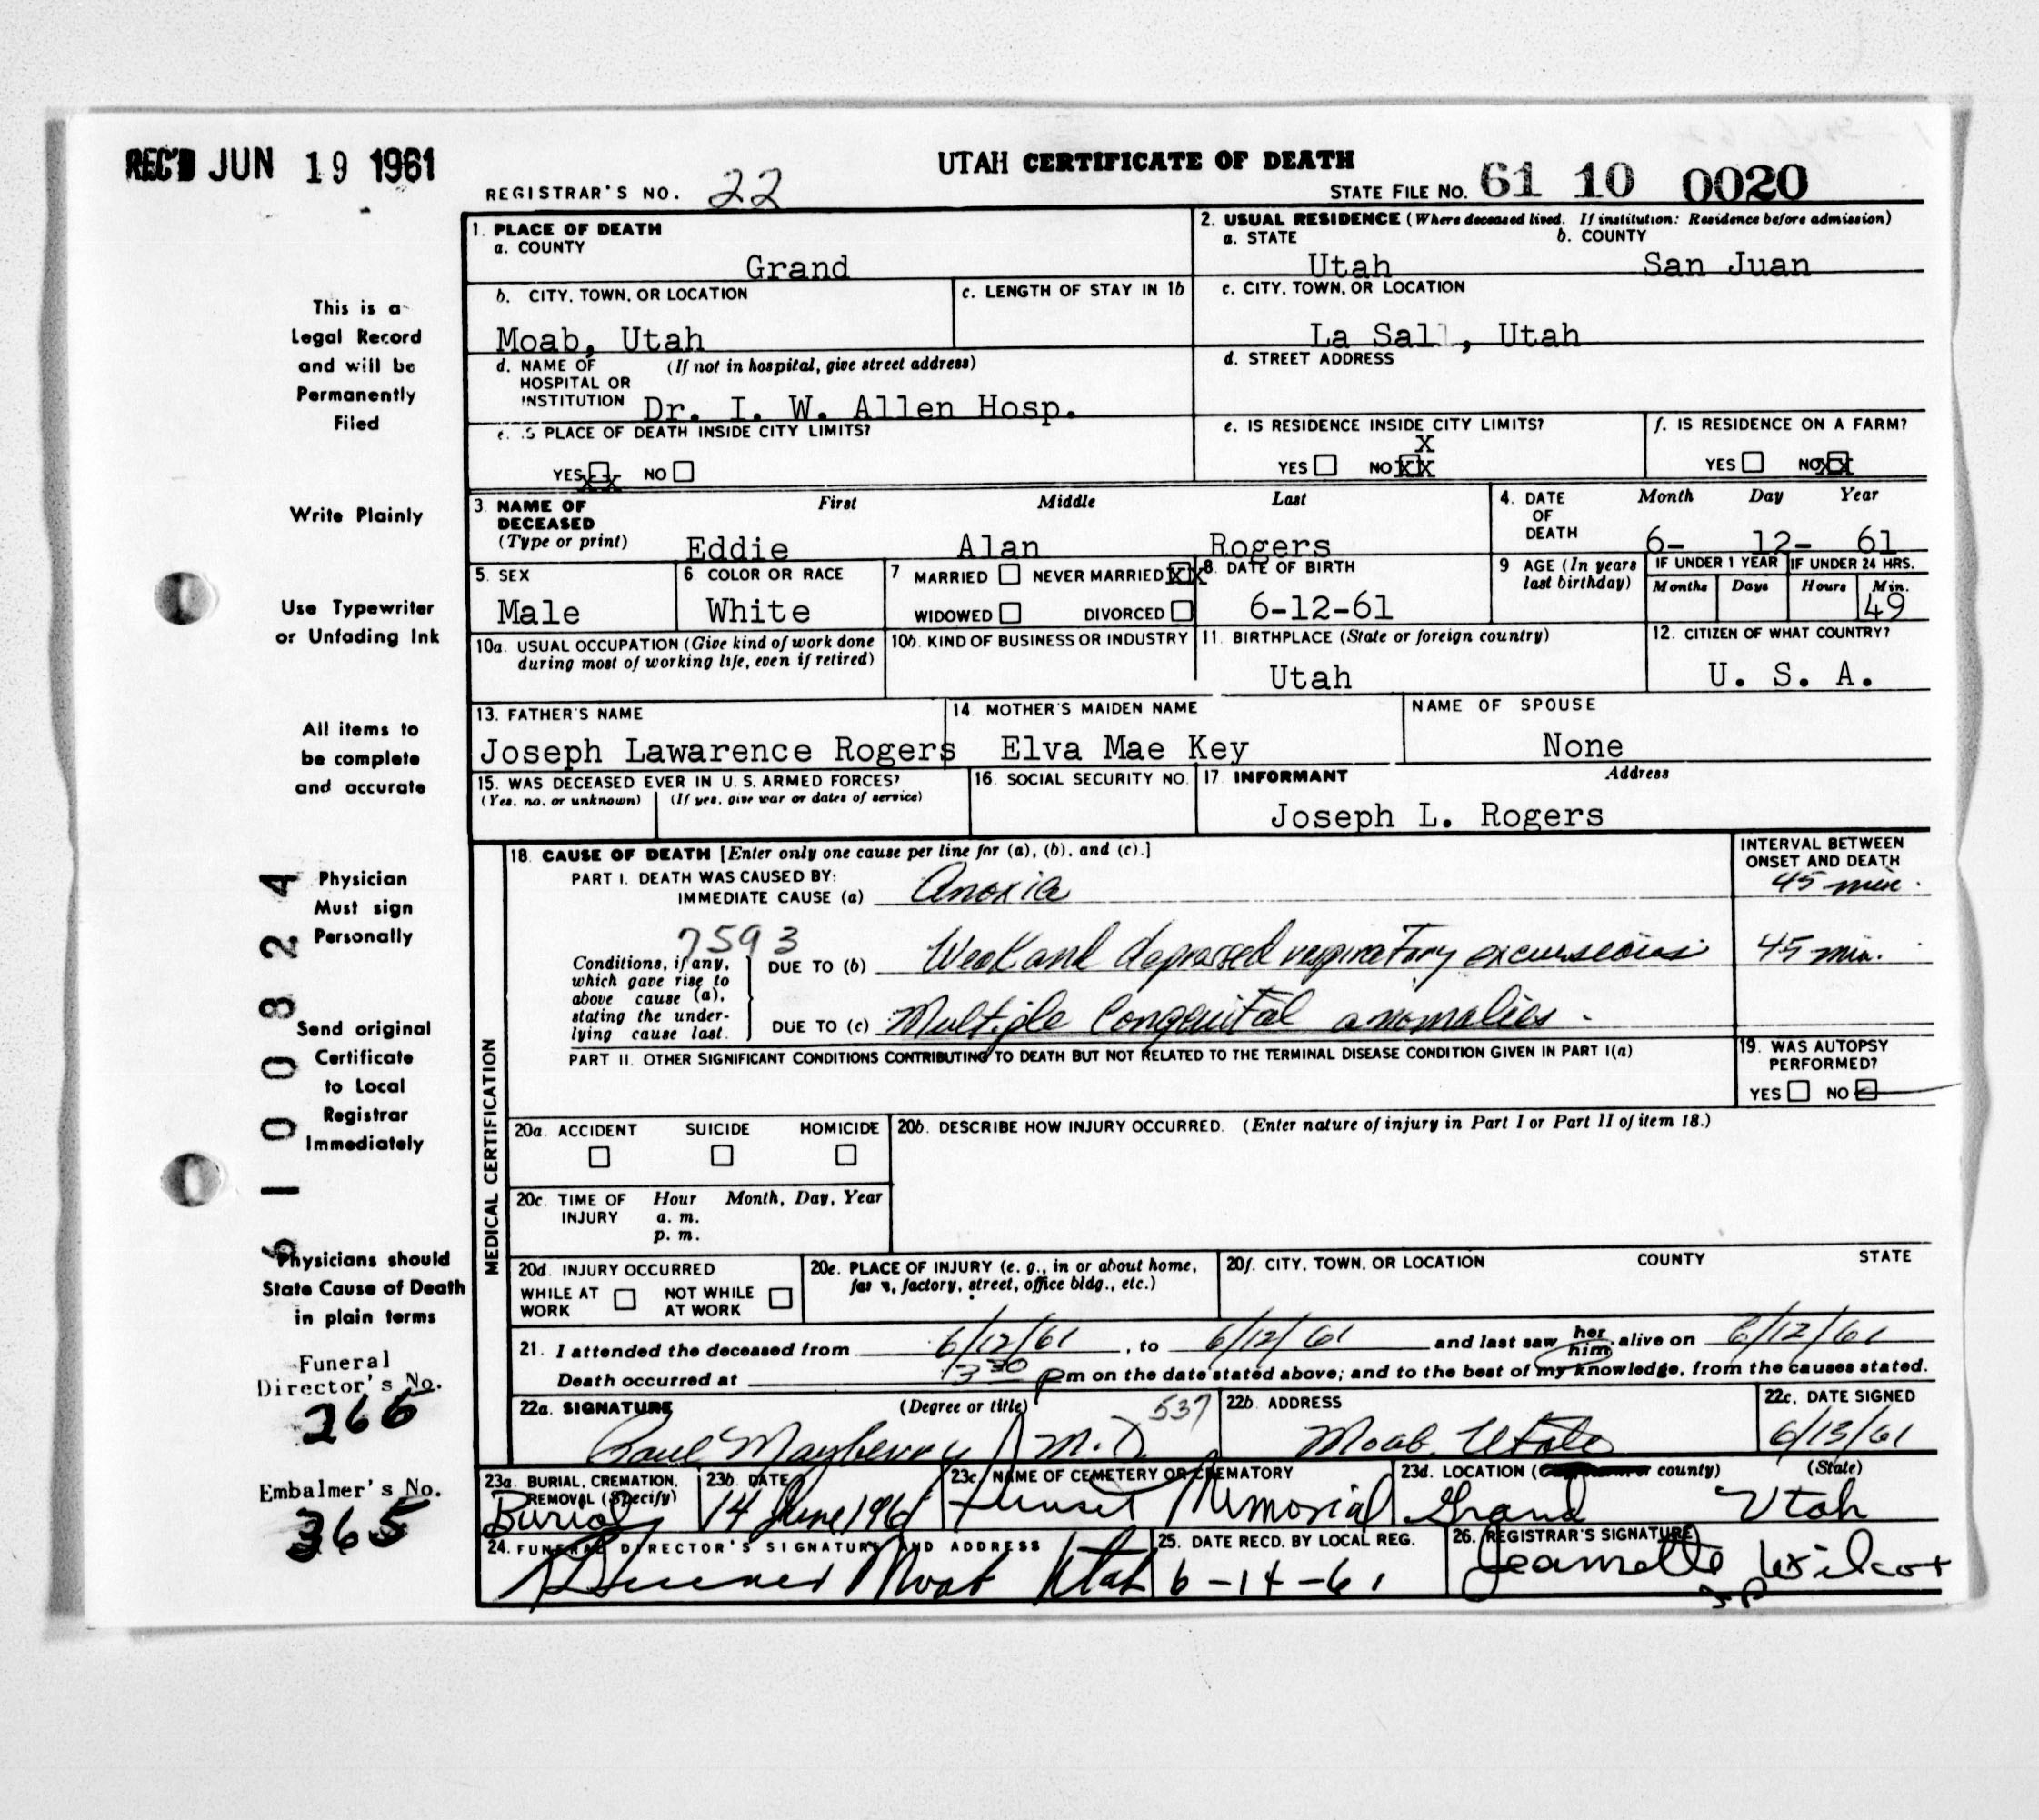 REC'D JUN 19 1961
UTAH CERTIFICATE OF DEATH
REGISTRAR'S NO. 22
STATE FILE NO. 61 10 0020
This is a
Legal Record
and will be
Permanently
Filed
Write Plainly
Use Typewriter
or Unfading Ink
All items to
be complete
and accurate
Physician
Must sign
Personally
Send original
Certificate
to Local
Registrar
Immediately
Physicians should
State Cause of Death
in plain terms
Funeral
Director's No.
266
Embalmer's No.
365
61008 24
1. PLACE OF DEATH
a. COUNTY
Grand
2. USUAL RESIDENCE (Where deceased lived. If institution: Residence before admission)
a. STATE b. COUNTY
Utah San Juan
b. CITY, TOWN, OR LOCATION
Moab, Utah
c. LENGTH OF STAY IN 1b
c. CITY, TOWN, OR LOCATION
La Sall, Utah
d. NAME OF (If not in hospital, give street address)
HOSPITAL OR
INSTITUTION Dr. I. W. Allen Hosp.
d. STREET ADDRESS
e. IS PLACE OF DEATH INSIDE CITY LIMITS?
YES XX NO
e. IS RESIDENCE INSIDE CITY LIMITS?
X
YES NO XX
f. IS RESIDENCE ON A FARM?
YES NO XX
3. NAME OF First Middle Last
DECEASED
(Type or print) Eddie Alan Rogers
4. DATE Month Day Year
OF
DEATH 6- 12- 61
5. SEX
Male
6 COLOR OR RACE
White
7 MARRIED NEVER MARRIED XX
WIDOWED DIVORCED
8. DATE OF BIRTH
6-12-61
9 AGE (In years
last birthday)
IF UNDER 1 YEAR IF UNDER 24 HRS.
Months Days Hours Min.
49
10a. USUAL OCCUPATION (Give kind of work done
during most of working life, even if retired)
10b. KIND OF BUSINESS OR INDUSTRY
11. BIRTHPLACE (State or foreign country)
Utah
12. CITIZEN OF WHAT COUNTRY?
U. S. A.
13. FATHER'S NAME
Joseph Lawarence Rogers
14. MOTHER'S MAIDEN NAME
Elva Mae Key
NAME OF SPOUSE
None
15. WAS DECEASED EVER IN U. S. ARMED FORCES?
(Yes, no, or unknown) (If yes, give war or dates of service)
16. SOCIAL SECURITY NO.
17. INFORMANT Address
Joseph L. Rogers
MEDICAL CERTIFICATION
18. CAUSE OF DEATH [Enter only one cause per line for (a), (b), and (c).]
INTERVAL BETWEEN
ONSET AND DEATH
PART I. DEATH WAS CAUSED BY:
IMMEDIATE CAUSE (a) Anoxia 45 min.
7593
Conditions, if any,
which gave rise to
above cause (a),
stating the under-
lying cause last.
DUE TO (b) Weak and depressed respiratory excursions 45 min.
DUE TO (c) Multiple Congenital anomalies.
PART II. OTHER SIGNIFICANT CONDITIONS CONTRIBUTING TO DEATH BUT NOT RELATED TO THE TERMINAL DISEASE CONDITION GIVEN IN PART I(a)
19. WAS AUTOPSY
PERFORMED?
YES NO
20a. ACCIDENT SUICIDE HOMICIDE
20b. DESCRIBE HOW INJURY OCCURRED. (Enter nature of injury in Part I or Part II of item 18.)
20c. TIME OF Hour Month, Day, Year
INJURY a. m.
p. m.
20d. INJURY OCCURRED
WHILE AT NOT WHILE
WORK AT WORK
20e. PLACE OF INJURY (e. g., in or about home,
farm, factory, street, office bldg., etc.)
20f. CITY, TOWN, OR LOCATION COUNTY STATE
21. I attended the deceased from 6/12/61, to 6/12/61 and last saw her him alive on 6/12/61
Death occurred at 330 pm on the date stated above; and to the best of my knowledge, from the causes stated.
22a. SIGNATURE (Degree or title) 537
Paul Mayberry M.D.
22b. ADDRESS
Moab, Utah
22c. DATE SIGNED
6/13/61
23a. BURIAL, CREMATION,
REMOVAL (Specify)
Burial
23b. DATE
14 June 1961
23c. NAME OF CEMETERY OR CREMATORY
Sunset Memorial
23d. LOCATION ( county) (State)
Grand Utah
24. FUNERAL DIRECTOR'S SIGNATURE AND ADDRESS
Moab Utah
25. DATE RECD. BY LOCAL REG.
6-14-61
26. REGISTRAR'S SIGNATURE
Jeannette Wilcox